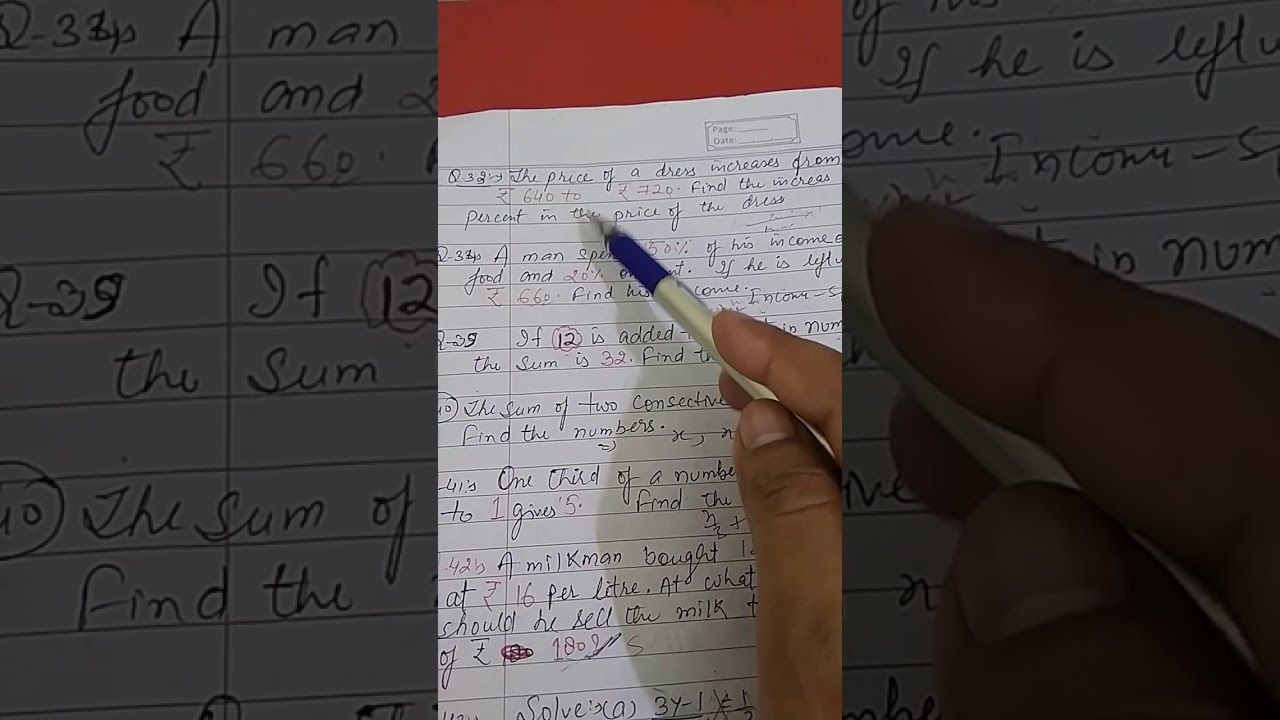 Page:
Date:
The price of a dress increases from
₹ 640 to ₹ 720. Find the increas
percent in the price of the dress
A man spen 50% of his income
food and 20% on nt. If he is left
₹ 660. Find his come.
Income -
If 12 is added in num
the sum is 32. Find th
The sum of two consective
Find the numbers.
⇒ x,
One third of a numbe
to 1 gives 5. Find the
x/3 +
A milkman bought
at ₹ 16 per litre. At what
should he sell the milk
of ₹ 180
Solve:- (a) 3y-1